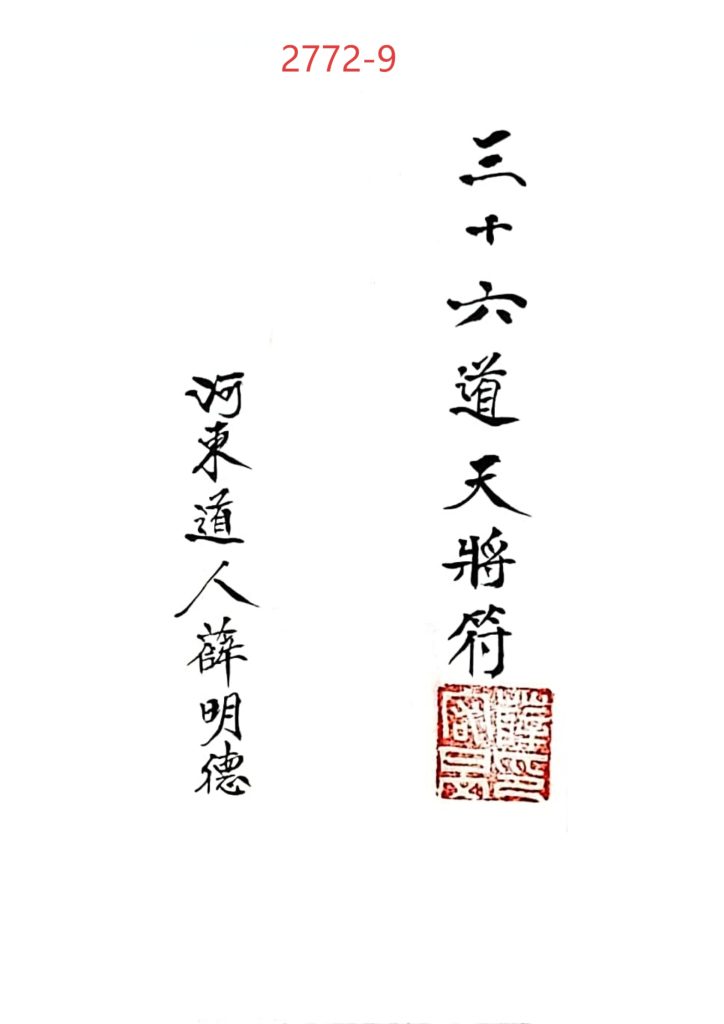 2772-9
三十六道天將符
河東道人薛明德